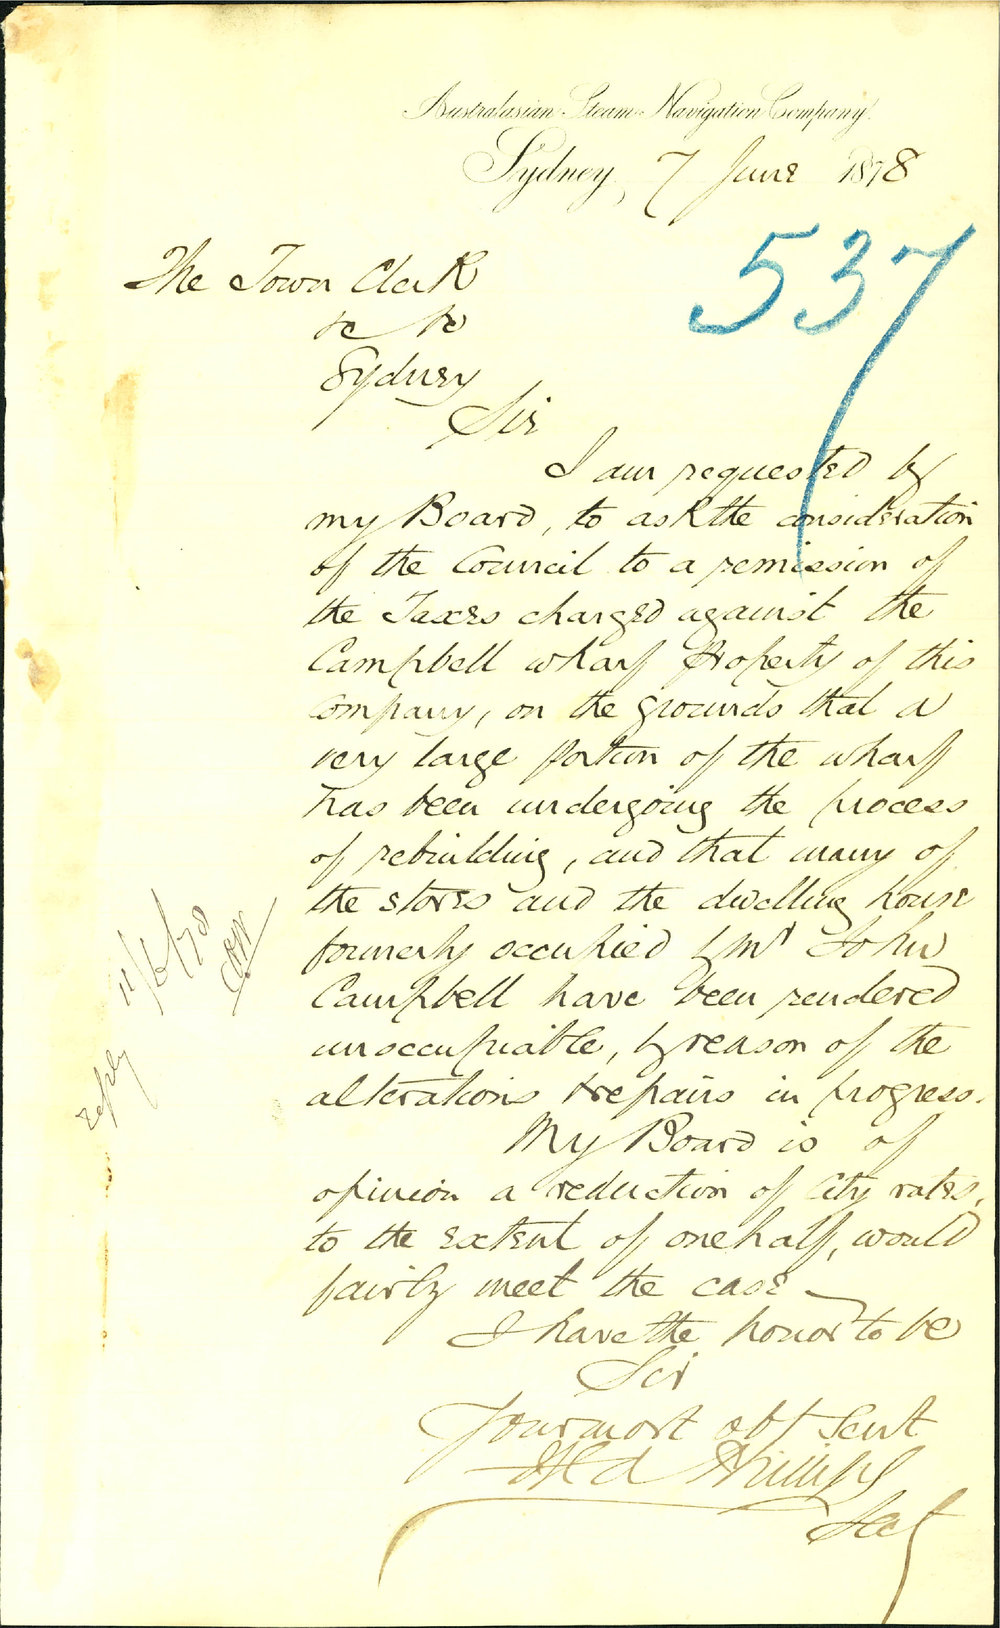 Australasian Steam Navigation Company
Sydney, 7 June 1878
537
The Town Clerk
&c &c
Sydney
Sir
I am requested by
my Board, to ask the consideration
of the Council to a remission of
the Taxes charged against the
Campbell wharf property of this
Company, on the grounds that a
very large portion of the wharf
has been undergoing the process
of rebuilding, and that many of
the stores and the dwelling house
formerly occupied by Mr John
Campbell have been rendered
unoccupiable, by reason of the
alterations & repairs in progress.
My Board is of
opinion a reduction of City rates,
to the extent of one half, would
fairly meet the case
I have the honor to be
Sir
Your most obt Servt
Phillips
Secy
reply 11/6/78